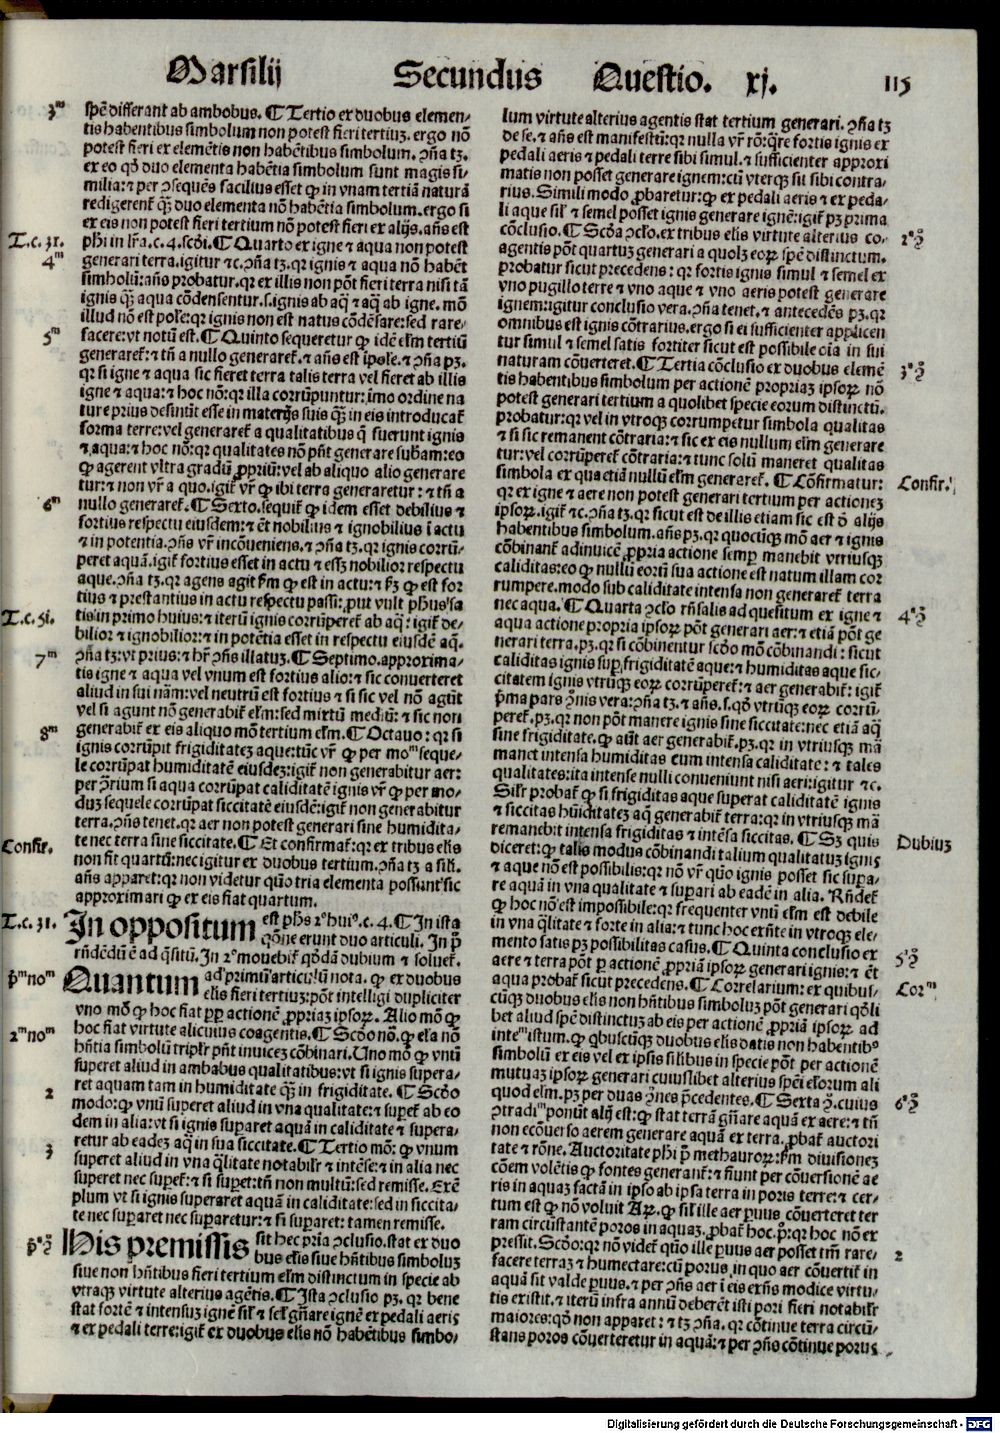 Marsilij Secundus Questio. xj. 115
3m
spē differant ab ambobus. ¶ Tertio ex duobus elemen-
tis habentibus simbolum non potest fieri tertiuȝ. ergo nō
potest fieri ex elemētis non habētibus simbolum. ꝯña tȝ.
ex eo qđ duo elementa habētia simbolum sunt magis si-
milia: ⁊ per ꝯsequēs facilius esset ꝙ in vnam tertiā naturā
redigerent̄ q̄ȝ duo elementa nō habētia simbolum. ergo si
ex eis non potest fieri tertium nō potest fieri ex alijs. añs est
T.c.31.
phi in lr̄a. c. 4. scđi. ¶ Quarto ex igne ⁊ aqua non potest
4m
generari terra. igitur ⁊c. ꝯña tȝ. qr ignis ⁊ aqua nō habēt
simbolū: añs probatur. qr ex illis non pōt fieri terra nisi tā
ignis q̄ȝ aqua cōdensentur. s. ignis ab aq̄ ⁊ aq̄ ab igne. mō
illud nō est pole: qr ignis non est natus cōdēsare: sed rare-
5m
facere: vt notū est. ¶ Quinto sequeretur ꝙ idē elm̄ tertiū
generaret̄: ⁊ tñ a nullo generaret̄. ⁊ añs est ipole. ⁊ ꝯña pȝ.
qr si igne ⁊ aqua sic fieret terra talis terra vel fieret ab illis
igne ⁊ aqua: ⁊ hoc nō: qr illa corrūpuntur: imo ordine na
ture prius desinūt esse in materijs suis q̄ȝ in eis introducat̄
forma terre: vel generaret̄ a qualitatibus q̄ fuerunt ignis
⁊ aqua: ⁊ hoc nō: qr qualitates nō pn̄t generare subam: eo
ꝙ agerent vltra gradū ꝓpriū: vel ab aliquo alio generare
tur: ⁊ non vr̄ a quo. igit̄ vr̄ ꝙ ibi terra generaretur: ⁊ tñ a
6m
nullo generaret̄. ¶ Sexto. sequit̄ ꝙ idem esset debilius ⁊
fortius respectu eiusdem: ⁊ ēt nobilius ⁊ ignobilius ī actu
⁊ in potentia. ꝯñs vr̄ incōueniens. ⁊ ꝯña tȝ. qr ignis corrū-
peret aquā. igit̄ fortius esset in actu ⁊ essȝ nobilior respectu
aque. ꝯña tȝ. qr agens agit fm̄ ꝙ est in actu: ⁊ fȝ ꝙ est for
tius ⁊ prestantius in actu respectu passi: ꝓut vult phus sa
T.c.51.
tis in primo huius: ⁊ iterū ignis corrūperet̄ ab aq̄: igit̄ de-
bilior ⁊ ignobilior: ⁊ in potētia esset in respectu eiusdē aq̄.
7m
ꝯña tȝ: vt prius: ⁊ hr̄ ꝯñs illatuȝ. ¶ Septimo. approxima-
tis igne ⁊ aqua vel vnum est fortius alio: ⁊ sic conuerteret
aliud in sui nām: vel neutrū est fortius ⁊ si sic vel nō agūt
vel si agunt nō generabit̄ elm̄: sed mixtū mediū: ⁊ sic non
8m
generabit̄ ex eis aliquo mō tertium elm̄. ¶ Octauo: qr si
ignis corrūpit frigiditateȝ aque: tūc vr̄ ꝙ per mom seque-
le corrūpat humiditatē eiusdeȝ: igit̄ non generabitur aer:
per ꝯrium si aqua corrūpat caliditatē ignis vr̄ ꝙ per mo-
duȝ sequele corrūpat siccitatē eiusdē: igit̄ non generabitur
terra. ꝯñs tenet. qr aer non potest generari sine humidita-
Confir.
te nec terra sine siccitate. ¶ Et confirmat̄: qr ex tribus elis
non fit quartū: nec igitur ex duobus tertium. ꝯña tȝ a sili.
añs apparet: qr non videtur quō tria elementa possunt sic
approximari ꝙ ex eis fiat quartum.
T.c.31.
In oppositum est phs 2º hui9. c. 4. ¶ In ista
qōne erunt duo articuli. In p̄
rn̄dēdū ē ad q̄situ. In 2º mouebit̄ qđā dubium ⁊ soluet̄.
p̄m nom
Quantum ad primū articulū nota. ꝙ ex duobus
elis fieri tertiuȝ: pōt intelligi dupliciter
vno mō ꝙ hoc fiat ꝑp actionē ꝓpriaȝ ipsoꝝ. Alio mō ꝙ
2m nom
hoc fiat virtute alicuius coagentis. ¶ Scđo nō. ꝙ ela nō
hn̄tia simbolū triplr̄ pn̄t inuiceȝ cōbinari. Uno mō ꝙ vnū
superet aliud in ambabus qualitatibus: vt si ignis supera-
ret aquam tam in humiditate q̄ȝ in frigiditate. ¶ Scđo
2
modo: ꝙ vnū superet aliud in vna qualitate: ⁊ supet̄ ab eo
dem in alia: vt si ignis suꝑaret aquā in caliditate ⁊ supera-
retur ab eadeȝ aq̄ in sua siccitate. ¶ Tertio mō: ꝙ vnum
3
superet aliud in vna q̄litate notabilr̄ ⁊ intēse: ⁊ in alia nec
superet nec supet̄: ⁊ si suꝑet: tñ non multū: sed remisse. Exē
plum vt si ignis superaret aquā in caliditate: sed in siccita-
te nec suꝑaret nec suꝑaretur: ⁊ si suꝑaret: tamen remisse.
p̄ª ꝯº
His premissis sit hec pria ꝯclusio. stat ex duo
bus elis siue hn̄tibus simboluȝ
siue non hn̄tibus fieri tertium elm̄ distinctum in specie ab
vtraqȝ virtute alterius agētis. ¶ Ista ꝯclusio pȝ. qr bene
stat fortē ⁊ intensuȝ ignē sil̄ ⁊ sel̄ gn̄are ignē ex pedali aeris
⁊ ex pedali terre: igit̄ ex duobus elis nō habētibus simbo-
lum virtute alterius agentis stat tertium generari. ꝯña tȝ
de se. ⁊ añs est manifestū: qr nulla vr̄ rō: q̄re fortis ignis ex
pedali aeris ⁊ pedali terre sibi simul. ⁊ sufficienter approxi
matis non posset generare ignem: cū vterqȝ sit sibi contra-
rius. Simili modo ꝓbaretur: ꝙ ex pedali aeris ⁊ ex peda-
li aque sil̄ ⁊ semel posset ignis generare ignē: igit̄ pȝ prima
2ª ꝯº
cōclusio. ¶ Scđa ꝯclo. ex tribus elis virtute alterius co-
agentis pōt quartuȝ generari a quolȝ eoꝝ spē distinctum.
probatur sicut precedens: qr fortis ignis simul ⁊ semel ex
vno pugillo terre ⁊ vno aque ⁊ vno aeris potest generare
ignem: igitur conclusio vera. ꝯña tenet. ⁊ antecedēs pȝ. qr
omnibus est ignis cōtrarius. ergo si ei sufficienter applicen
tur simul ⁊ semel satis fortiter sicut est possibile oīa in sui
3ª ꝯº
naturam cōuerteret. ¶ Tertia cōclusio ex duobus elemē
tis habentibus simbolum per actionē propriaȝ ipsoꝝ nō
potest generari tertium a quolibet specie eorum distinctū.
probatur: qr vel in vtroqȝ corrumpetur simbola qualitas
⁊ si sic remanent cōtraria: ⁊ sic ex eis nullum elm̄ generare
tur: vel corrūperet̄ cōtraria: ⁊ tunc solū maneret qualitas
Confir.
simbola ex qua etiā nullū elm̄ generaret̄. ¶ Cōfirmatur:
qr ex igne ⁊ aere non potest generari tertium per actioneȝ
ipsoꝝ. igit̄ ⁊c. ꝯña tȝ. qr sicut est de illis etiam sic est đ alijs
habentibus simbolum. añs pȝ. qr quocūqȝ mō aer ⁊ ignis
cōbinant̄ adinuicē ꝓpria actione semꝑ manebit vtriusqȝ
caliditas: eo ꝙ nullū eorū sua actione est natum illam cor
rumpere. modo sub caliditate intensa non generaret̄ terra
4ª ꝯº
nec aqua. ¶ Quarta ꝯclo rn̄salis ad quesitum ex igne ⁊
aqua actione propria ipsoꝝ pōt generari aer: ⁊ etiā pōt ge
nerari terra. pȝ. qr si cōbinentur scđo mō cōbinandi: sicut
caliditas ignis suꝑ frigiditatē aque: ⁊ humiditas aque sic-
citatem ignis vtrūqȝ eoꝝ corrūperet̄: ⁊ aer generabit̄: igit̄
p̄ma pars ꝯnis vera: ꝯña tȝ. ⁊ añs. s. qđ vtrūqȝ eoꝝ corrū-
peret̄. pȝ. qr non pōt manere ignis sine siccitate: nec etiā aq̄
sine frigiditate. ꝙ aūt aer generabit̄. pȝ. qr in vtriusqȝ mā
manet intensa humiditas cum intensa caliditate: ⁊ tales
qualitates: ita intense nulli conueniunt nisi aeri: igitur ⁊c.
Silr̄ probat̄ ꝙ si frigiditas aque superat caliditatē ignis
⁊ siccitas hūiditateȝ aq̄ generabit̄ terra: qr in vtriusqȝ mā
Dubiuȝ
remanebit intensa frigiditas ⁊ intēsa siccitas. ¶ Sȝ quis
diceret: ꝙ talis modus cōbinandi talium qualitatuȝ ignis
⁊ aque nō est possibilis: qr nō vr̄ quō ignis posset sic suꝑa-
re aquā in vna qualitate ⁊ suꝑari ab eadē in alia. Rn̄det̄
ꝙ hoc nō est impossibile: qr frequenter vnū elm̄ est debile
in vna q̄litate ⁊ forte in alia: ⁊ tunc hoc exn̄te in vtroqȝ ele-
mento satis pȝ possibilitas casus. ¶ Quinta conclusio ex
5ª ꝯº
aere ⁊ terra pōt ꝑ actionē ꝓpriā ipsoꝝ generari ignis: ⁊ ēt
Corm
aqua probat̄ sicut precedens. ¶ Correlarium: ex quibus-
cūqȝ duobus elis non hn̄tibus simboluȝ pōt generari qđli
bet aliud spē distinctuȝ ab eis per actionē ꝓpriā ipsoꝝ ad
intem istum. ꝙ qbuscūqȝ duobus elis datis non habentib9
simbolū ex eis vel ex ipsis silibus in specie pōt per actionē
mutuaȝ ipsoꝝ generari cuiuslibet alterius spēi eloꝝ ali
6ª ꝯº
quod elm. pȝ per duas ꝯnes p̄cedentes. ¶ Sexta ꝯ. cuius
ꝯtradim ponūt alij est: ꝙ stat terrā gn̄are aquā ex aere: ⁊ tñ
non ecōuerso aerem generare aquā ex terra. ꝓbat̄ auctori
tate ⁊ rōne. Auctoritate phi p̄ methauroꝝ: fm̄ diuisioneȝ
cōem volētis ꝙ fontes generant̄: ⁊ fiunt per cōuersionē ae
ris in aquaȝ factā in ipso ab ipsa terra in poris terre: ⁊ cer-
tum est ꝙ nō voluit Aꝝ. ꝙ sil̄ ille aer ꝑuus cōuerteret ter
ram circūstantē poros in aquaȝ. ꝓbat̄ hoc. p̄: qr hoc nō ex
2
pressit. Scđo: qr nō videt̄ quō ille ꝑuus aer posset tm̄ rare-
facere terraȝ ⁊ humectare: cū porus in quo aer cōuertit̄ in
aquā sit valde ꝑuus. ⁊ per ꝯñs aer ī eis exn̄s modice virtu-
tis existit. ⁊ iterū infra annū deberēt isti pori fieri notabilr̄
maiores: qđ non apparet: ⁊ tȝ ꝯña. qr cōtinue terra circū-
stans poros cōuerteretur in aquā: ⁊ per ꝯñs cōtinue porus
Digitalisierung gefördert durch die Deutsche Forschungsgemeinschaft - DFG